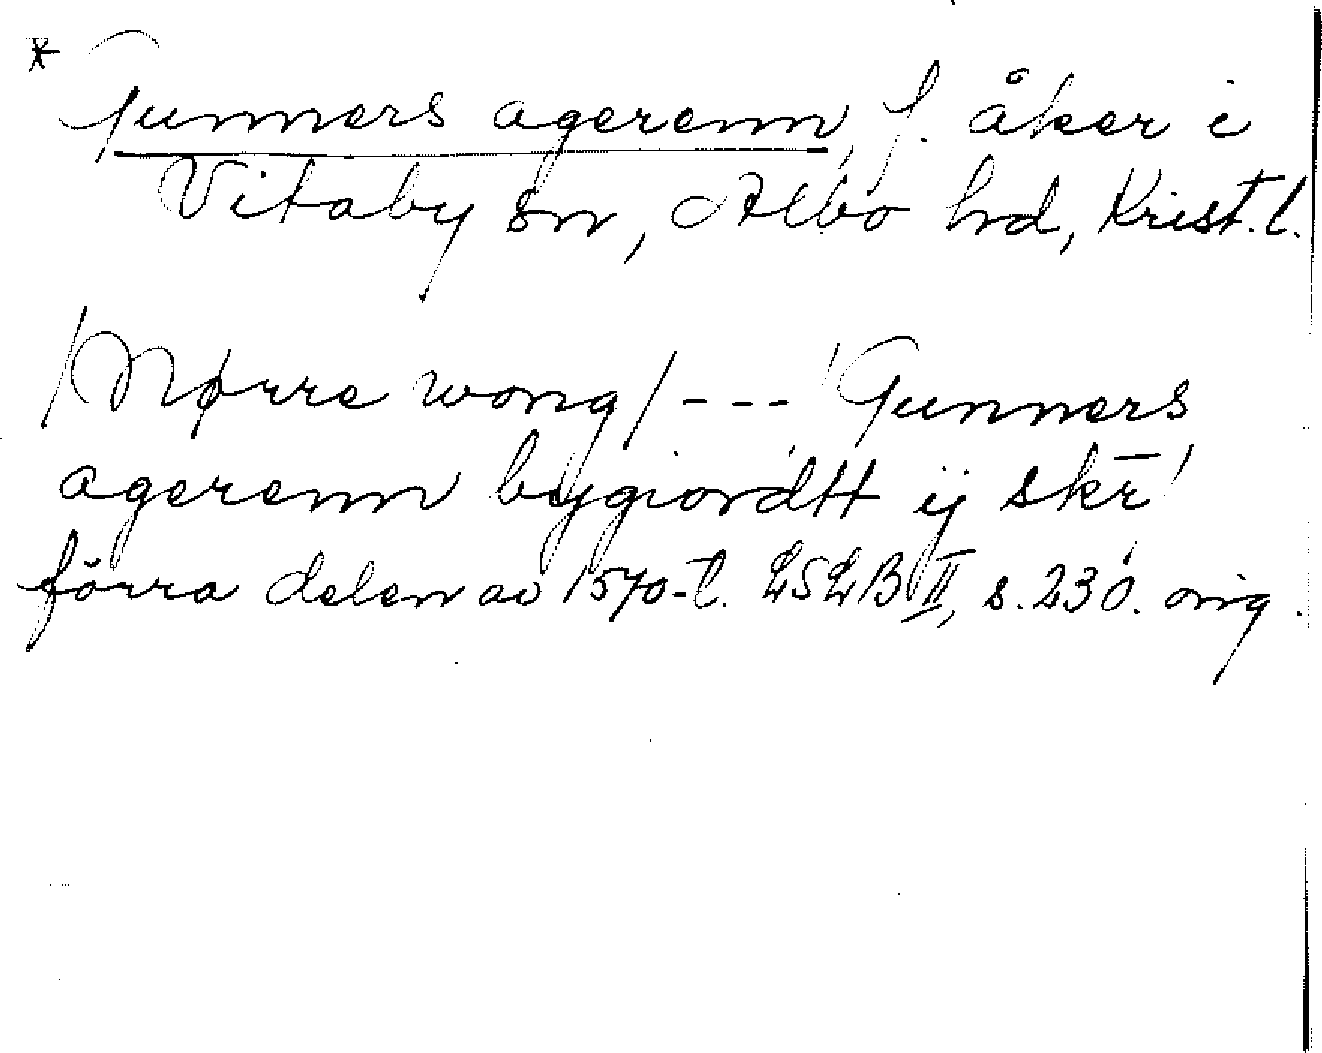 * Gunners agerenn, f. åker i
Vitaby sn, Albo hd, Krist.l.
/Nørre wong/ --- 'Gunners
agerenn bygiordtt ij skr̄'
förra delen av 1570-t. LSLB II, s. 230. orig.